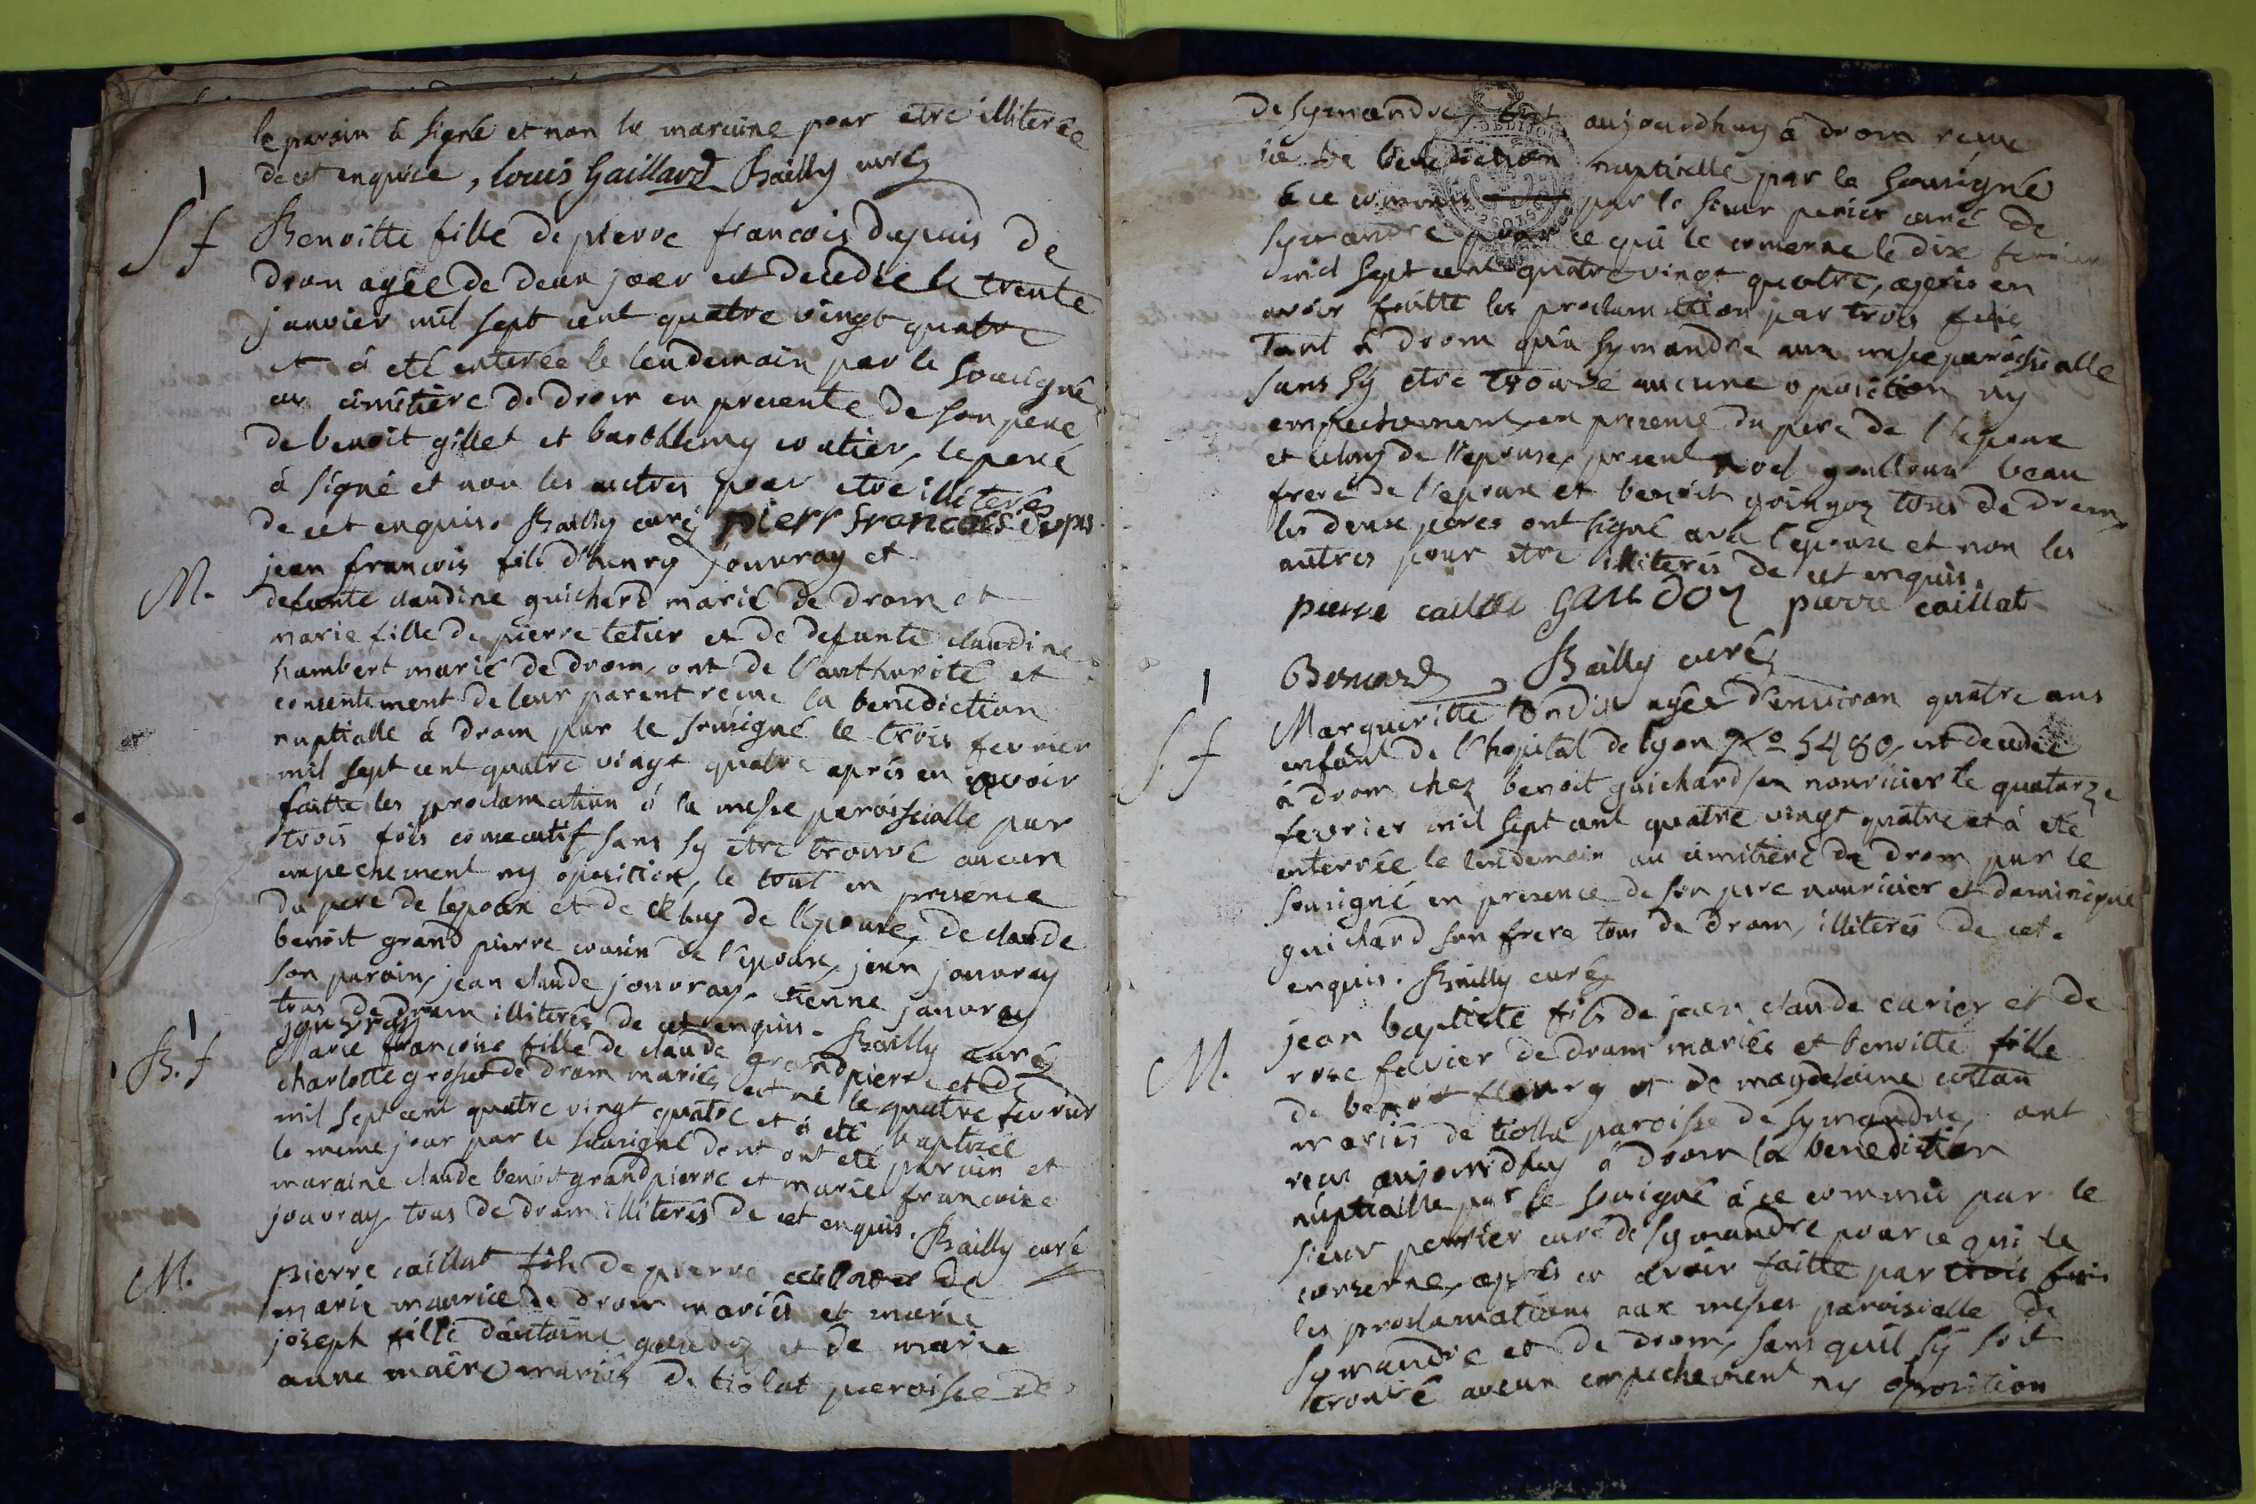 le parain à signé et non la maraine pour etre illiterée
de cet enquise, louis Gaillard Bailly curé
1
S f
Benoitte fille de pierre francois dupuis de
drom agée de deux jour est decedée le trente
janvier mil sept cent quatre vingt quatre
et à eté enterée le lendemain par le sousigné
au cimitiere de drom en presente de son pere,
de benoit gillet et barthlemy coutier, le peré
à signé et non les autres pour etre illiterés
de cet enquis. Bailly curé pierr francois dupuis
M.
jean francois fils d'henry jouvray et
defunte claudine guichard marié de drom et
marie fille de pierre tetier et de defunte claudine
hambert marié de drom, ont de l'authorité et
consentement de leur parent recue la benediction
nuptialle à drom par le sousigné le trois fevrier
mil sept cent quatre vingt quatre apris en avoir
faitte les proclamation à la messe paroissialle par
trois fois consecutif, sans sy etre trouvé aucun
empechement ny oposition, le tout en presence
du pere de lepoux et de celuy de l'epouse, de claude
benoit grand pierre cousin de l'epouse, jean jouvray
son parain, jean claude jouvray, etienne jouvray
tous de drom illiterés de cet enquis. Bailly curé
jouvray
1
B. f
Marie francoise fille de claude grandpierre et de
charlotte groset de drom mariés est né le quatre fevrier
mil sept cent quatre vingt quatre et à eté baptisée
le meme jour par le sousigné dont ont eté parain et
maraine claude benoit grandpierre et marie francoise
jouvray tous de drom illiterés de cet enquis. Bailly curé
M.
pierre caillat fils de pierre caillat et de
marie maurice de drom mariés et marie
joseph fille d'antoine gauldoz et de marie
anne maire mariés de tiolat paroisse de
de symandre, ont aujourdhuy à drom recue
la benediction nuptialle par le sousigné
à ce commis par le sieur perier curé de
symandre pour ce qui le conserne le dix fevrier
mil sept cent quatre vingt quatre, apris en
avoir faitte les proclamation par trois fois
tant à drom qu'a symandre aux messe paroissialle
sans sy etre trouvé aucune oposition ny
empechement, en presence du pere de l'epoux
et celuy de l'epouse, present noel goulloux beau
frere de l'epoux et benoit goingoz tous de drom,
les deux peres ont signé avec l'epoux et non les
autres pour etre illiterés de cet enquis.
pierre caillat GAULDOZ pierre caillat
Bernard Bailly curé
1
S. f
Margueritte Bondis agée d'environ quatre ans
enfant de l'hopital de lyon No 5480, est decedée
à drom chez benoit guichard son nouricier le quatorze
fevrier mil sept cent quatre vingt quatre et à eté
enterrée le lendemain au cimitiere de drom par le
sousigné en presence de son pere nouricier et dominique
guichard son frere tous de drom, illiterés de cet
enquis. Bailly curé
M.
jean baptiste fils de jean claude carier et de
rose favier de drom mariés et benoitte fille
de benoit fleury et de magdelaine cottan
mariés de tiolla paroisse de symandre, ont
recue aujourdhuy à drom la benediction
nuptialle par le sousigné à ce commis par le
sieur perrier curé de symandre pour ce qui le
conserne, apris en avoir faitte par trois fois
les proclamations aux messes paroissialle de
symandre et de drom, sans quil sy soit
trouvé aucun empechement ny oposition